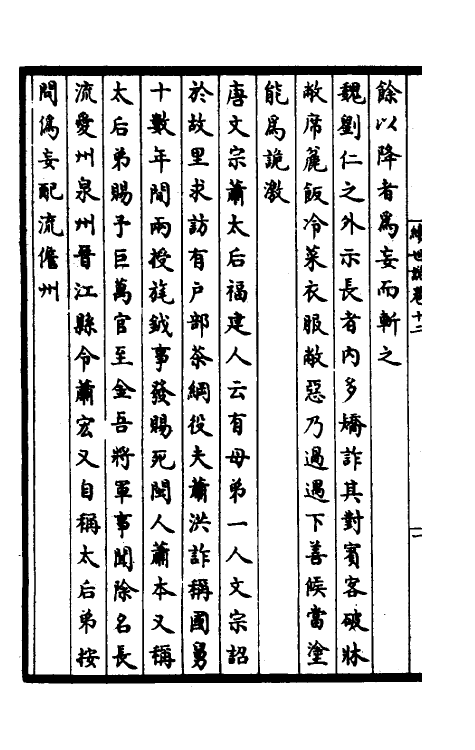 續世說卷十二
餘以降者爲妄而斬之
魏劉仁之外示長者内多矯詐其對賓客破牀
敝席麄飯冷菜衣服敝惡乃過遇下善候當塗
能爲詭激
唐文宗蕭太后福建人云有母弟一人文宗詔
於故里求訪有戶部茶綱役夫蕭洪詐稱國舅
十數年間兩授旄鉞事發賜死閩人蕭本又稱
太后弟賜予巨萬官至金吾將軍事聞除名長
流愛州泉州晉江縣令蕭宏又自稱太后弟按
問僞妄配流儋州